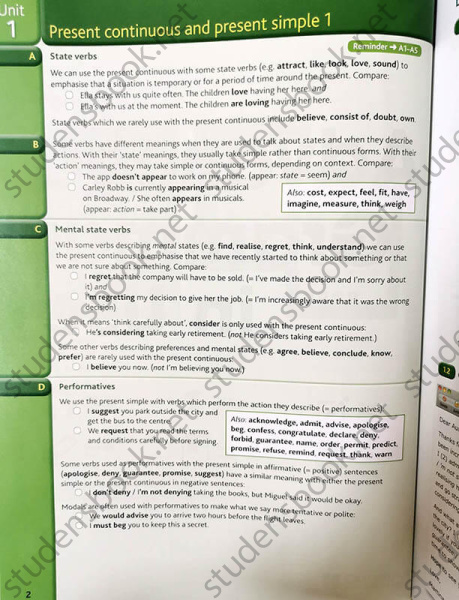 Unit
1
Present continuous and present simple 1
Reminder → A1–A5
A
State verbs
We can use the present continuous with some state verbs (e.g. attract, like, look, love, sound) to
emphasise that a situation is temporary or for a period of time around the present. Compare:
Ella stays with us quite often. The children love having her here. and
Ella's with us at the moment. The children are loving having her here.
State verbs which we rarely use with the present continuous include believe, consist of, doubt, own.
B
Some verbs have different meanings when they are used to talk about states and when they describe
actions. With their 'state' meanings, they usually take simple rather than continuous forms. With their
'action' meanings, they may take simple or continuous forms, depending on context. Compare:
The app doesn't appear to work on my phone. (appear: state = seem) and
Carley Robb is currently appearing in a musical
on Broadway. / She often appears in musicals.
(appear: action = take part)
Also: cost, expect, feel, fit, have,
imagine, measure, think, weigh
C
Mental state verbs
With some verbs describing mental states (e.g. find, realise, regret, think, understand) we can use
the present continuous to emphasise that we have recently started to think about something or that
we are not sure about something. Compare:
I regret that the company will have to be sold. (= I've made the decision and I'm sorry about
it) and
I'm regretting my decision to give her the job. (= I'm increasingly aware that it was the wrong
decision)
When it means 'think carefully about', consider is only used with the present continuous:
He's considering taking early retirement. (not He considers taking early retirement.)
Some other verbs describing preferences and mental states (e.g. agree, believe, conclude, know,
prefer) are rarely used with the present continuous:
I believe you now. (not I'm believing you now.)
D
Performatives
We use the present simple with verbs which perform the action they describe (= performatives):
I suggest you park outside the city and
get the bus to the centre.
We request that you read the terms
and conditions carefully before signing.
Also: acknowledge, admit, advise, apologise,
beg, confess, congratulate, declare, deny,
forbid, guarantee, name, order, permit, predict,
promise, refuse, remind, request, thank, warn
Some verbs used as performatives with the present simple in affirmative (= positive) sentences
(apologise, deny, guarantee, promise, suggest) have a similar meaning with either the present
simple or the present continuous in negative sentences:
I don't deny / I'm not denying taking the books, but Miguel said it would be okay.
Modals are often used with performatives to make what we say more tentative or polite:
We would advise you to arrive two hours before the flight leaves.
I must beg you to keep this a secret.
2
12
studensbook.net